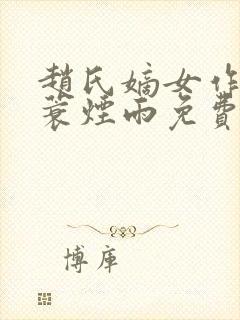 趙氏嫡女作
蓑煙雨免費
博庫